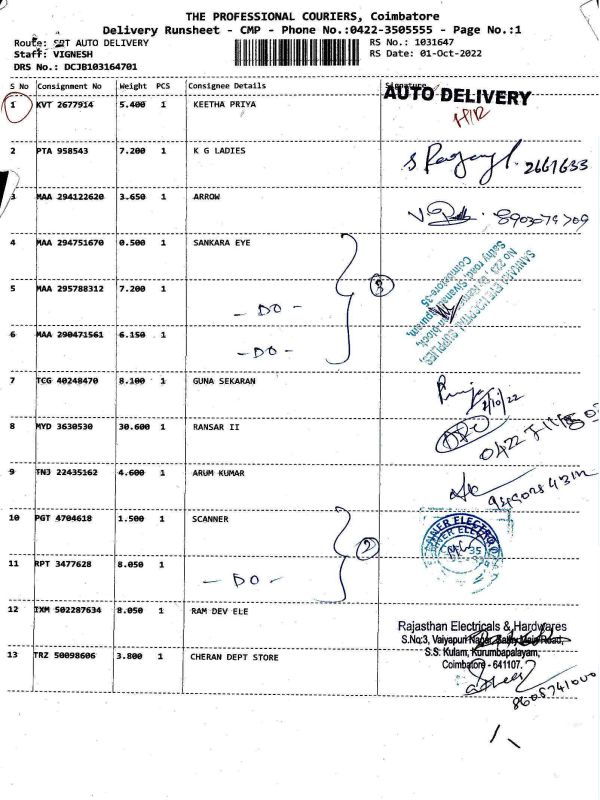 THE PROFESSIONAL COURIERS, Coimbatore
Delivery Runsheet - CMP - Phone No.:0422-3505555 - Page No.:1
Route: SRT AUTO DELIVERY
Staff: VIGNESH
DRS No.: DCJB103164701
RS No.: 1031647
RS Date: 01-Oct-2022
S No Consignment No Weight PCS Consignee Details Signature
AUTO DELIVERY
1 KVT 2677914 5.400 1 KEETHA PRIYA
2 PTA 958543 7.200 1 K G LADIES 2661633
3 MAA 294122620 3.650 1 ARROW
4 MAA 294751670 0.500 1 SANKARA EYE
5 MAA 295788312 7.200 1 - DO - 3
6 MAA 290471561 6.150 1 - DO -
SANKARA EYE HOSPITAL SUPPLIES,
Coimbatore-35
7 TCG 40248470 8.100 1 GUNA SEKARAN
8 MYD 3630530 30.600 1 RANSAR II
9 TNJ 22435162 4.600 1 ARUM KUMAR
10 PGT 4704618 1.500 1 SCANNER
11 RPT 3477628 8.050 1 - DO - 2
12 IXM 502287634 8.050 1 RAM DEV ELE
Rajasthan Electricals & Hardwares
S.No:3, Vaiyapuri Nagar, Sathy Main Road,
S.S. Kulam, Kurumbapalayam,
Coimbatore - 641107.
13 TRZ 50098606 3.800 1 CHERAN DEPT STORE